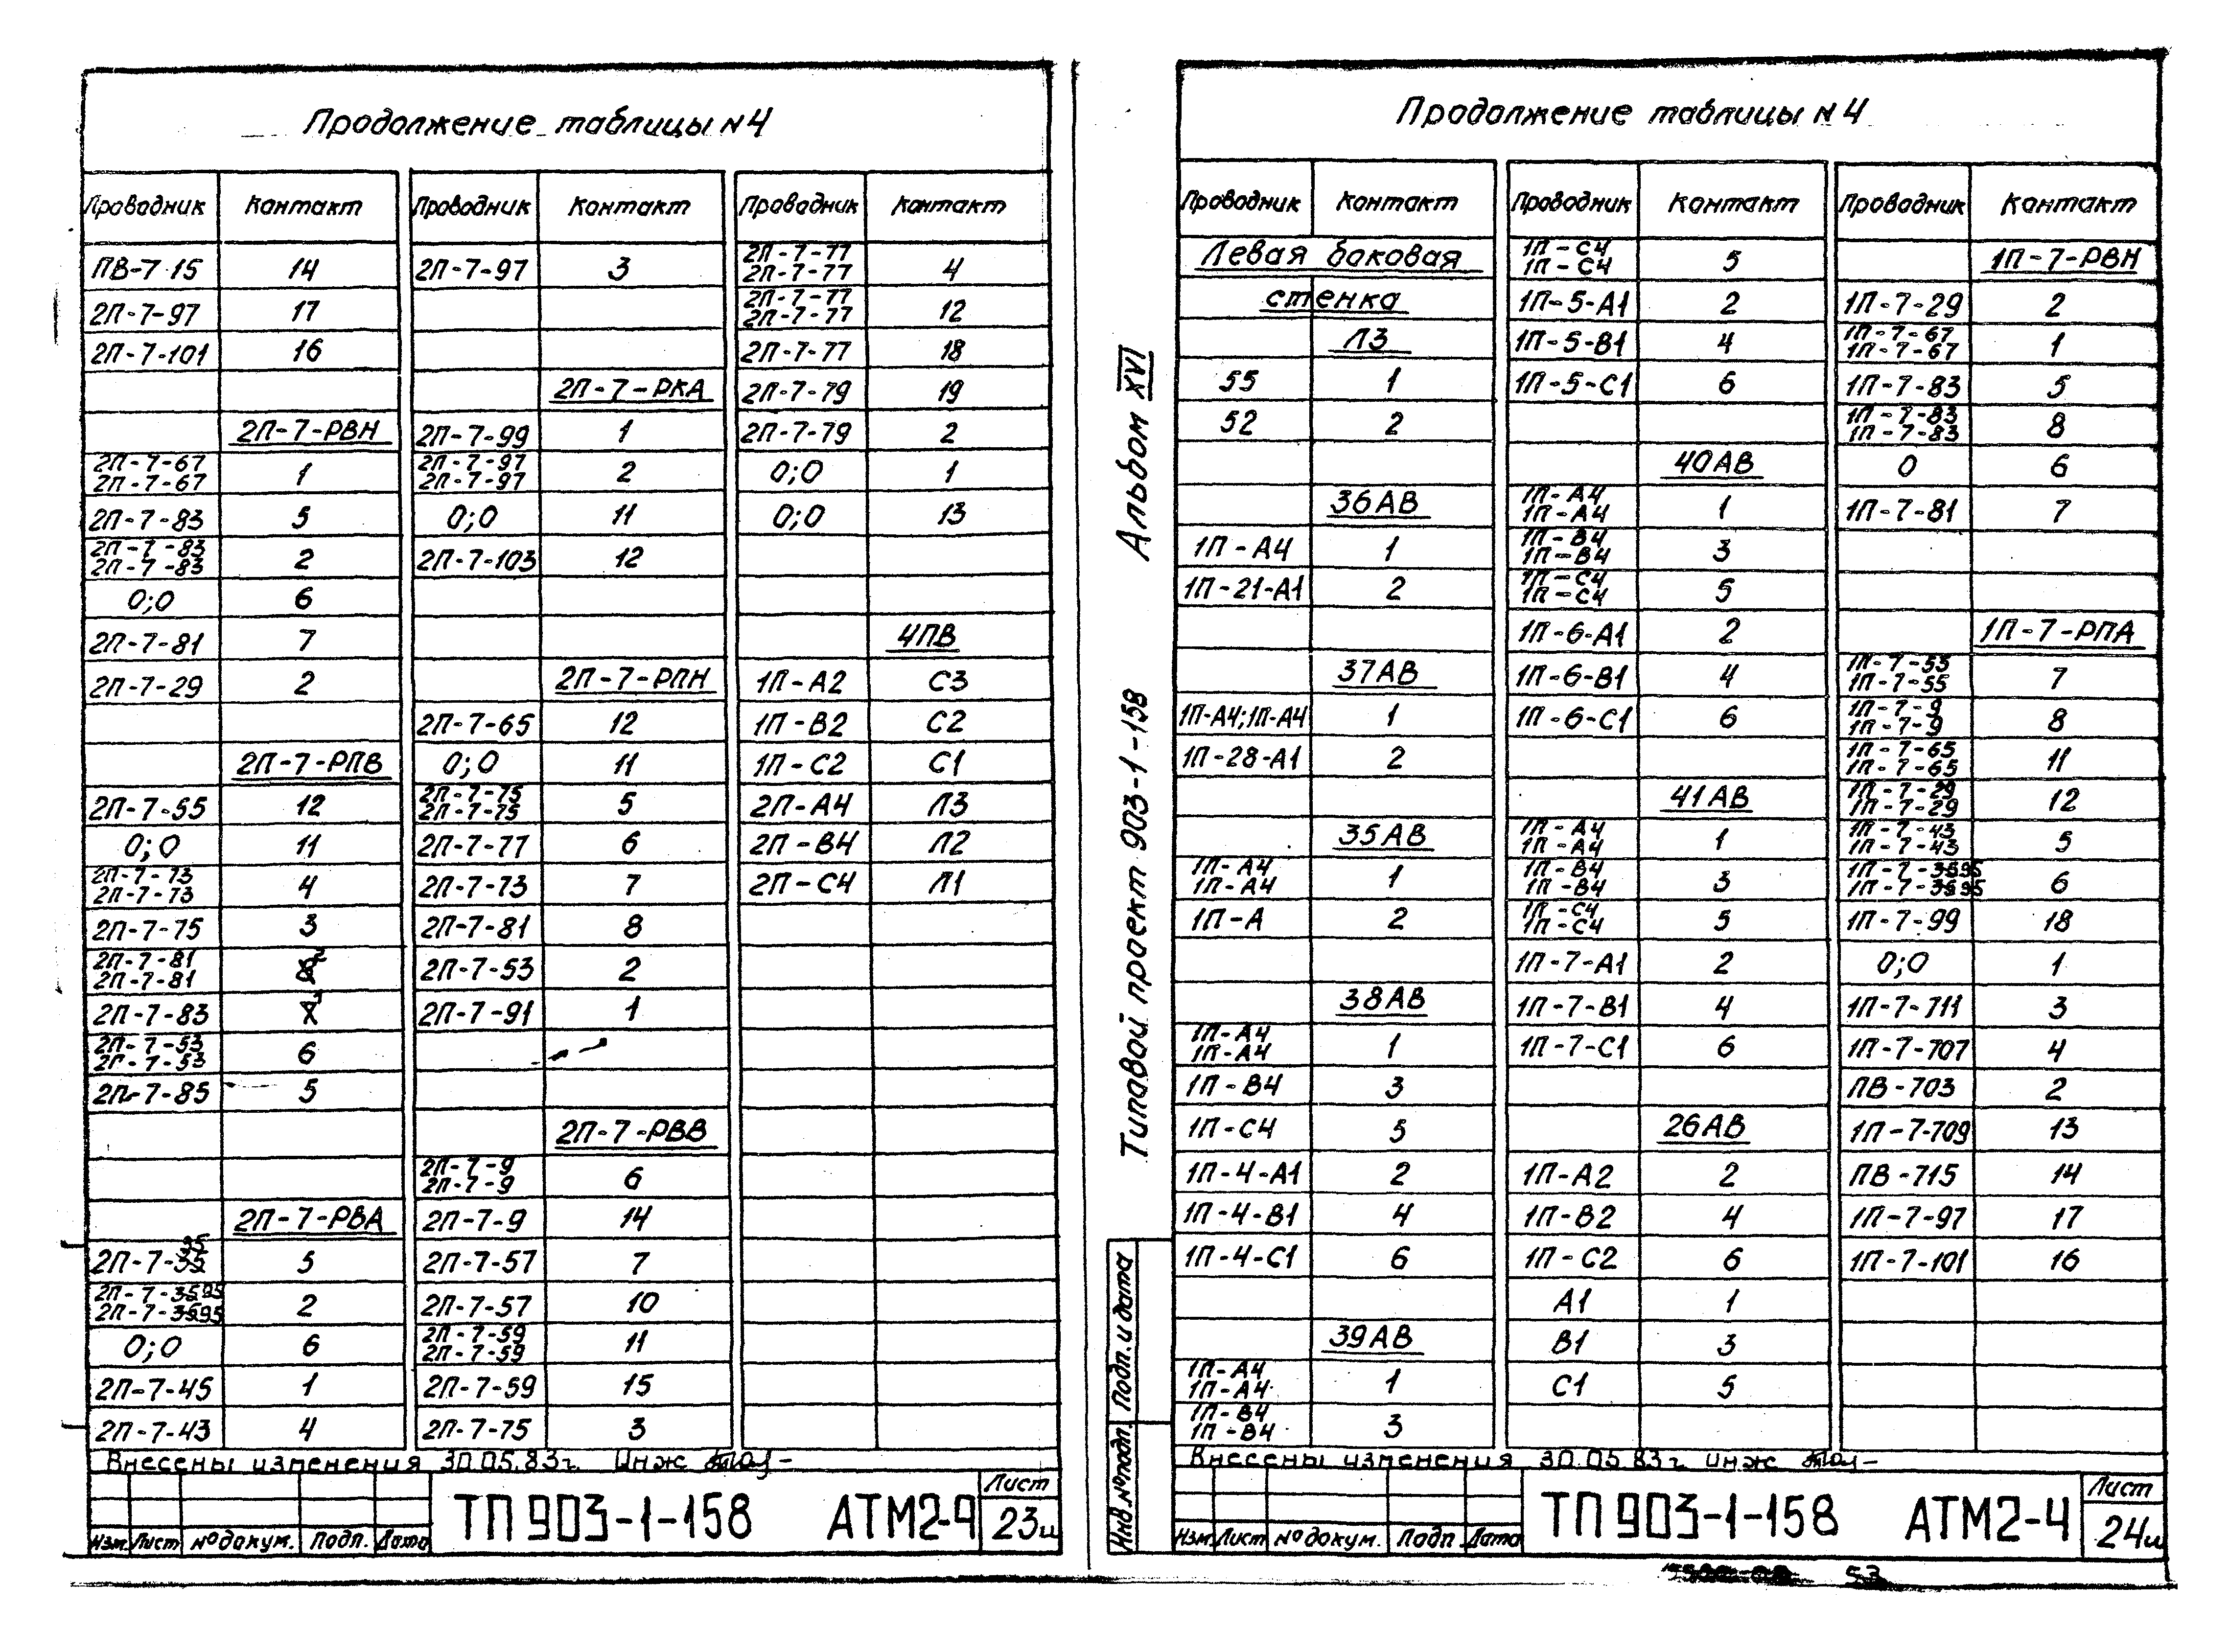 Продолжение таблицы N4
Проводник Контакт Проводник Контакт Проводник Контакт
ПВ-7 15 14 2П-7-97 3 2П-7-77 2П-7-77 4
2П-7-97 17 2П-7-77 2П-7-77 12
2П-7-101 16 2П-7-77 18
2П-7-РКА 2П-7-79 19
2П-7-РВН 2П-7-99 1 2П-7-79 2
2П-7-67 2П-7-67 1 2П-7-97 2П-7-97 2 0;0 1
2П-7-83 5 0;0 11 0;0 13
2П-7-83 2П-7-83 2 2П-7-103 12
0;0 6
2П-7-81 7 4ПВ
2П-7-29 2 2П-7-РПН 1П-А2 С3
2П-7-65 12 1П-В2 С2
2П-7-РПВ 0;0 11 1П-С2 С1
2П-7-55 12 2П-7-75 2П-7-75 5 2П-А4 Л3
0;0 11 2П-7-77 6 2П-В4 Л2
2П-7-73 2П-7-73 4 2П-7-73 7 2П-С4 Л1
2П-7-75 3 2П-7-81 8
2П-7-81 2П-7-81 2 2П-7-53 2
2П-7-83 1 2П-7-91 1
2П-7-53 2П-7-53 6
2П-7-85 5
2П-7-РВВ
2П-7-9 2П-7-9 6
2П-7-РВА 2П-7-9 14
2П-7-35 5 2П-7-57 7
2П-7-3595 2П-7-3595 2 2П-7-57 10
0;0 6 2П-7-59 2П-7-59 11
2П-7-45 1 2П-7-59 15
2П-7-43 4 2П-7-75 3
Внесены изменения 30.05.83г. Инж
Изм. Лист №докум. Подп. Дата
ТП 903-1-158 АТМ2-4
Лист
23и
Альбом XVI
Типовой проект 903-1-158
Подп. и дата
Инв.№подп.
Продолжение таблицы N4
Проводник Контакт Проводник Контакт Проводник Контакт
Левая боковая 1П-С4 1П-С4 5 1П-7-РВН
стенка 1П-5-А1 2 1П-7-29 2
Л3 1П-5-В1 4 1П-7-67 1П-7-67 1
55 1 1П-5-С1 6 1П-7-83 5
52 2 1П-7-83 1П-7-83 8
40АВ 0 6
36АВ 1П-А4 1П-А4 1 1П-7-81 7
1П-А4 1 1П-В4 1П-В4 3
1П-21-А1 2 1П-С4 1П-С4 5
1П-6-А1 2 1П-7-РПА
37АВ 1П-6-В1 4 1П-7-55 1П-7-55 7
1П-А4;1П-А4 1 1П-6-С1 6 1П-7-9 1П-7-9 8
1П-28-А1 2 1П-7-65 1П-7-65 11
41АВ 1П-7-29 1П-7-29 12
35АВ 1П-А4 1П-А4 1 1П-7-43 1П-7-43 5
1П-А4 1П-А4 1 1П-В4 1П-В4 3 1П-7-3595 1П-7-3595 6
1П-А 2 1П-С4 1П-С4 5 1П-7-99 18
1П-7-А1 2 0;0 1
38АВ 1П-7-В1 4 1П-7-711 3
1П-А4 1П-А4 1 1П-7-С1 6 1П-7-707 4
1П-В4 3 ПВ-703 2
1П-С4 5 26АВ 1П-7-709 13
1П-4-А1 2 1П-А2 2 ПВ-715 14
1П-4-В1 4 1П-В2 4 1П-7-97 17
1П-4-С1 6 1П-С2 6 1П-7-101 16
А1 1
39АВ В1 3
1П-А4 1П-А4 1 С1 5
1П-В4 1П-В4 3
Внесены изменения 30.05.83г. Инж
Изм. Лист №докум. Подп Дата
ТП 903-1-158 АТМ2-4
Лист
24и
53